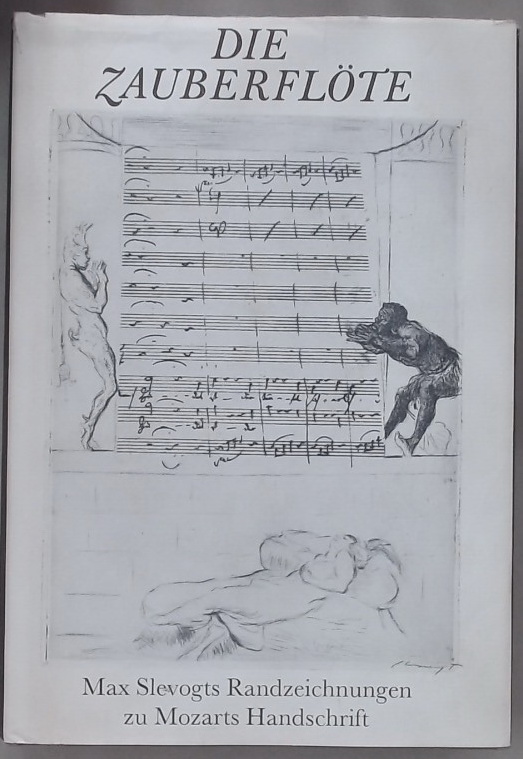 DIE
ZAUBERFLÖTE
Max Slevogts Randzeichnungen
zu Mozarts Handschrift